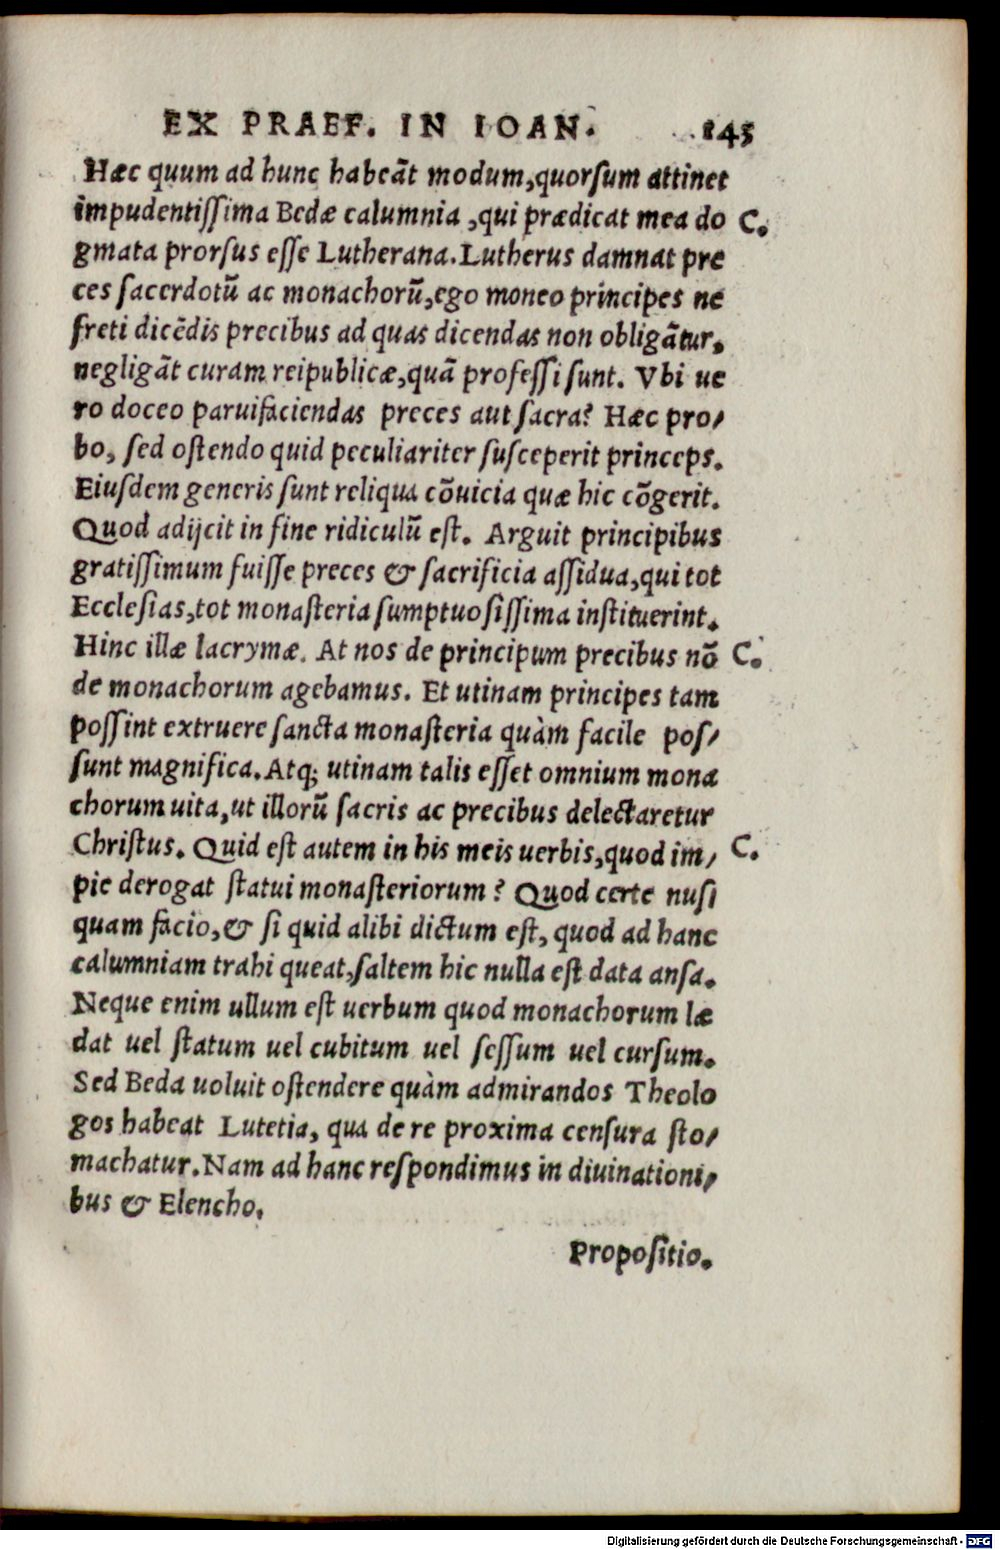 EX PRAEF. IN IOAN. 245
Hæc quum ad hunc habeãt modum,quorſum attinet
impudentiſſima Bedæ calumnia ,qui prædicat mea do C.
gmata prorſus eſſe Lutherana.Lutherus damnat pre
ces ſacerdotũ ac monachorũ,ego moneo principes ne
freti dicẽdis precibus ad quas dicendas non obligãtur,
negligãt curam reipublicæ,quã profeſſi ſunt. Vbi ue
ro doceo paruifaciendas preces aut ſacra? Hæc pro/
bo, ſed oſtendo quid peculiariter ſuſceperit princeps.
Eiuſdem generis ſunt reliqua cõuicia quæ hic cõgerit.
Quod adijcit in fine ridiculũ eſt. Arguit principibus
gratiſſimum fuiſſe preces & ſacrificia aſſidua,qui tot
Eccleſias,tot monaſteria ſumptuoſiſſima inſtituerint.
Hinc illæ lacrymæ. At nos de principum precibus nõ C.
de monachorum agebamus. Et utinam principes tam
poſſint extruere ſancta monaſteria quàm facile poſ/
ſunt magnifica.Atq; utinam talis eſſet omnium mona
chorum uita,ut illorũ ſacris ac precibus delectaretur
Chriſtus. Quid eſt autem in his meis uerbis,quod im/ C.
pie derogat ſtatui monaſteriorum? Quod certe nuſ
quam facio,& ſi quid alibi dictum eſt, quod ad hanc
calumniam trahi queat,ſaltem hic nulla eſt data anſa.
Neque enim ullum eſt uerbum quod monachorum læ
dat uel ſtatum uel cubitum uel ſeſſum uel curſum.
Sed Beda uoluit oſtendere quàm admirandos Theolo
gos habeat Lutetia, qua de re proxima cenſura ſto/
machatur.Nam ad hanc reſpondimus in diuinationi/
bus & Elencho.
Propoſitio.
Digitalisierung gefördert durch die Deutsche Forschungsgemeinschaft - DFG